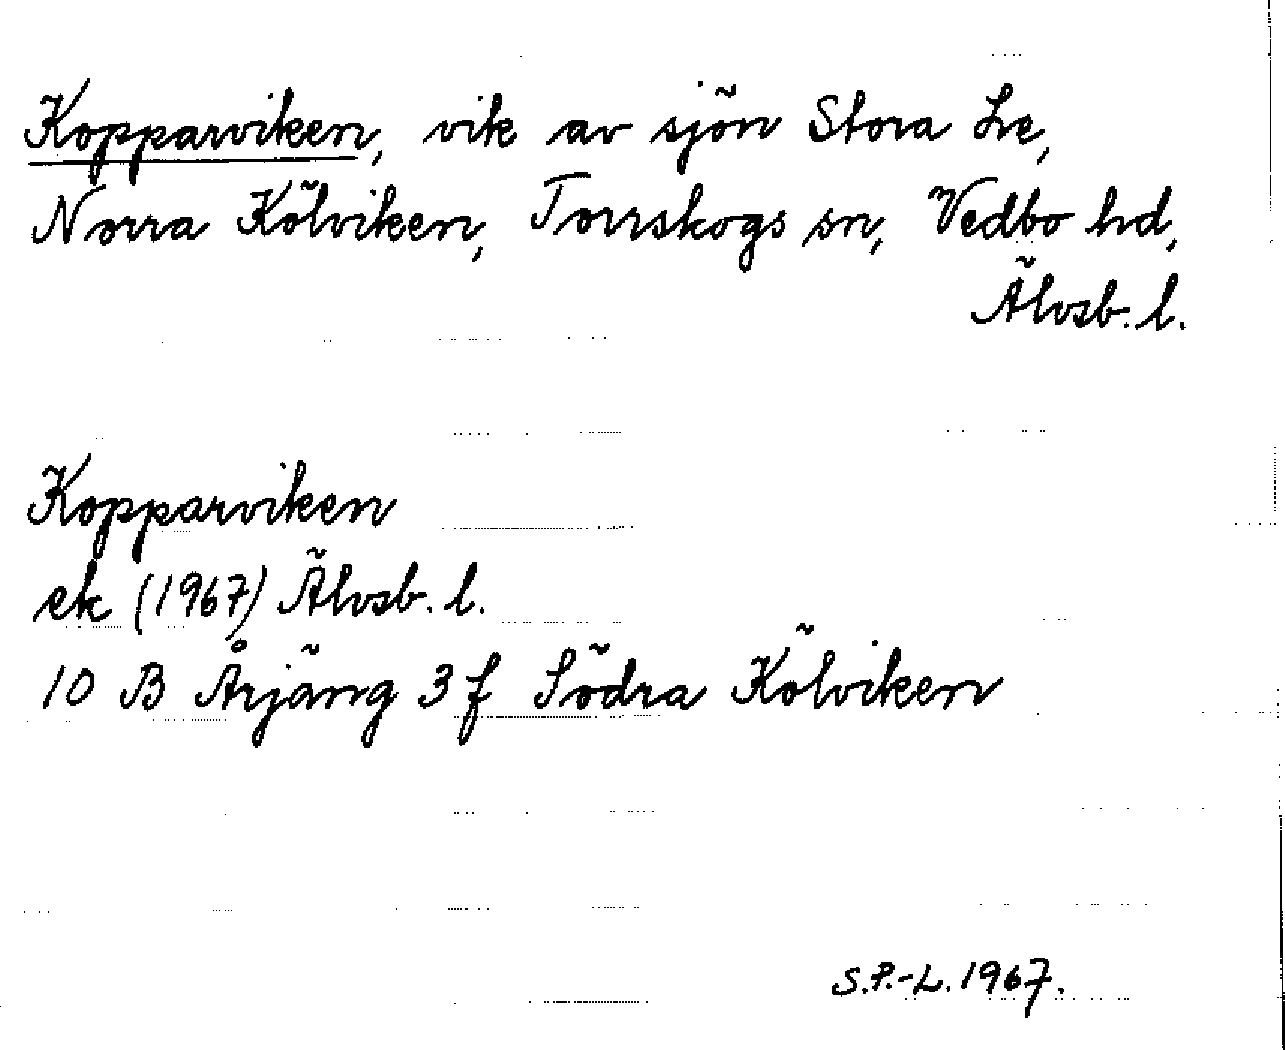 Kopparviken, vik av sjön Stora Le,
Norra Kölviken, Torrskogs sn, Vedbo hd,
Älvsb. l.
Kopparviken
ek (1967) Älvsb. l.
10 B Årjäng 3 f Södra Kölviken
S.P.-L. 1967.